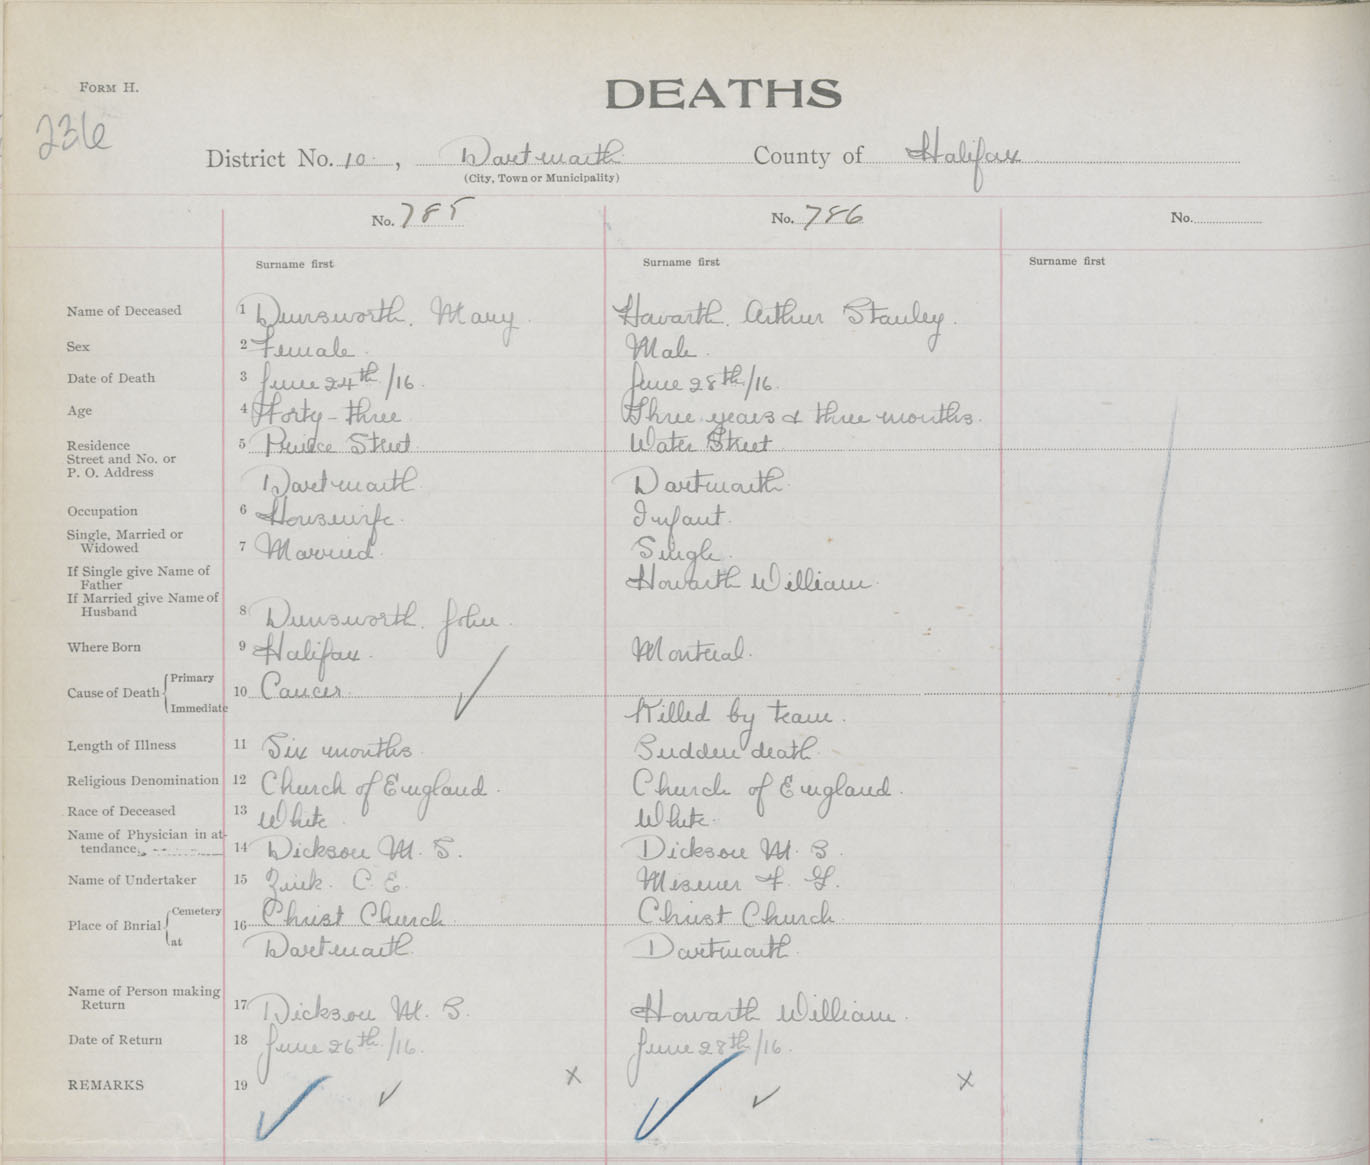 FORM H.
DEATHS
236
District No. 10, Dartmouth County of Halifax
(City, Town or Municipality)
No. 785 No. 786 No.
Surname first Surname first Surname first
Name of Deceased 1 Dunsworth, Mary Howarth, Arthur Stanley.
Sex 2 Female. Male.
Date of Death 3 June 24th/16. June 28th/16.
Age 4 Forty-three Three years & three months.
Residence 5 Street Water Street
Street and No. or
P. O. Address Dartmouth Dartmouth
Occupation 6 Housewife. Infant.
Single, Married or
Widowed 7 Married. Single.
If Single give Name of
Father Howarth William.
If Married give Name of
Husband 8 Dunsworth, John.
Where Born 9 Halifax. Montreal.
Cause of Death Primary 10 Cancer
Immediate Killed by team.
Length of Illness 11 Six months Sudden death
Religious Denomination 12 Church of England. Church of England.
Race of Deceased 13 White. White.
Name of Physician in at-
tendance 14 Dickson M. S. Dickson M. S.
Name of Undertaker 15 Zink. C. E. Misener F. G.
Place of Burial Cemetery 16 Christ Church Christ Church
at Dartmouth. Dartmouth.
Name of Person making
Return 17 Dickson M. S. Howarth William.
Date of Return 18 June 26th/16. June 28th/16.
REMARKS 19 x x